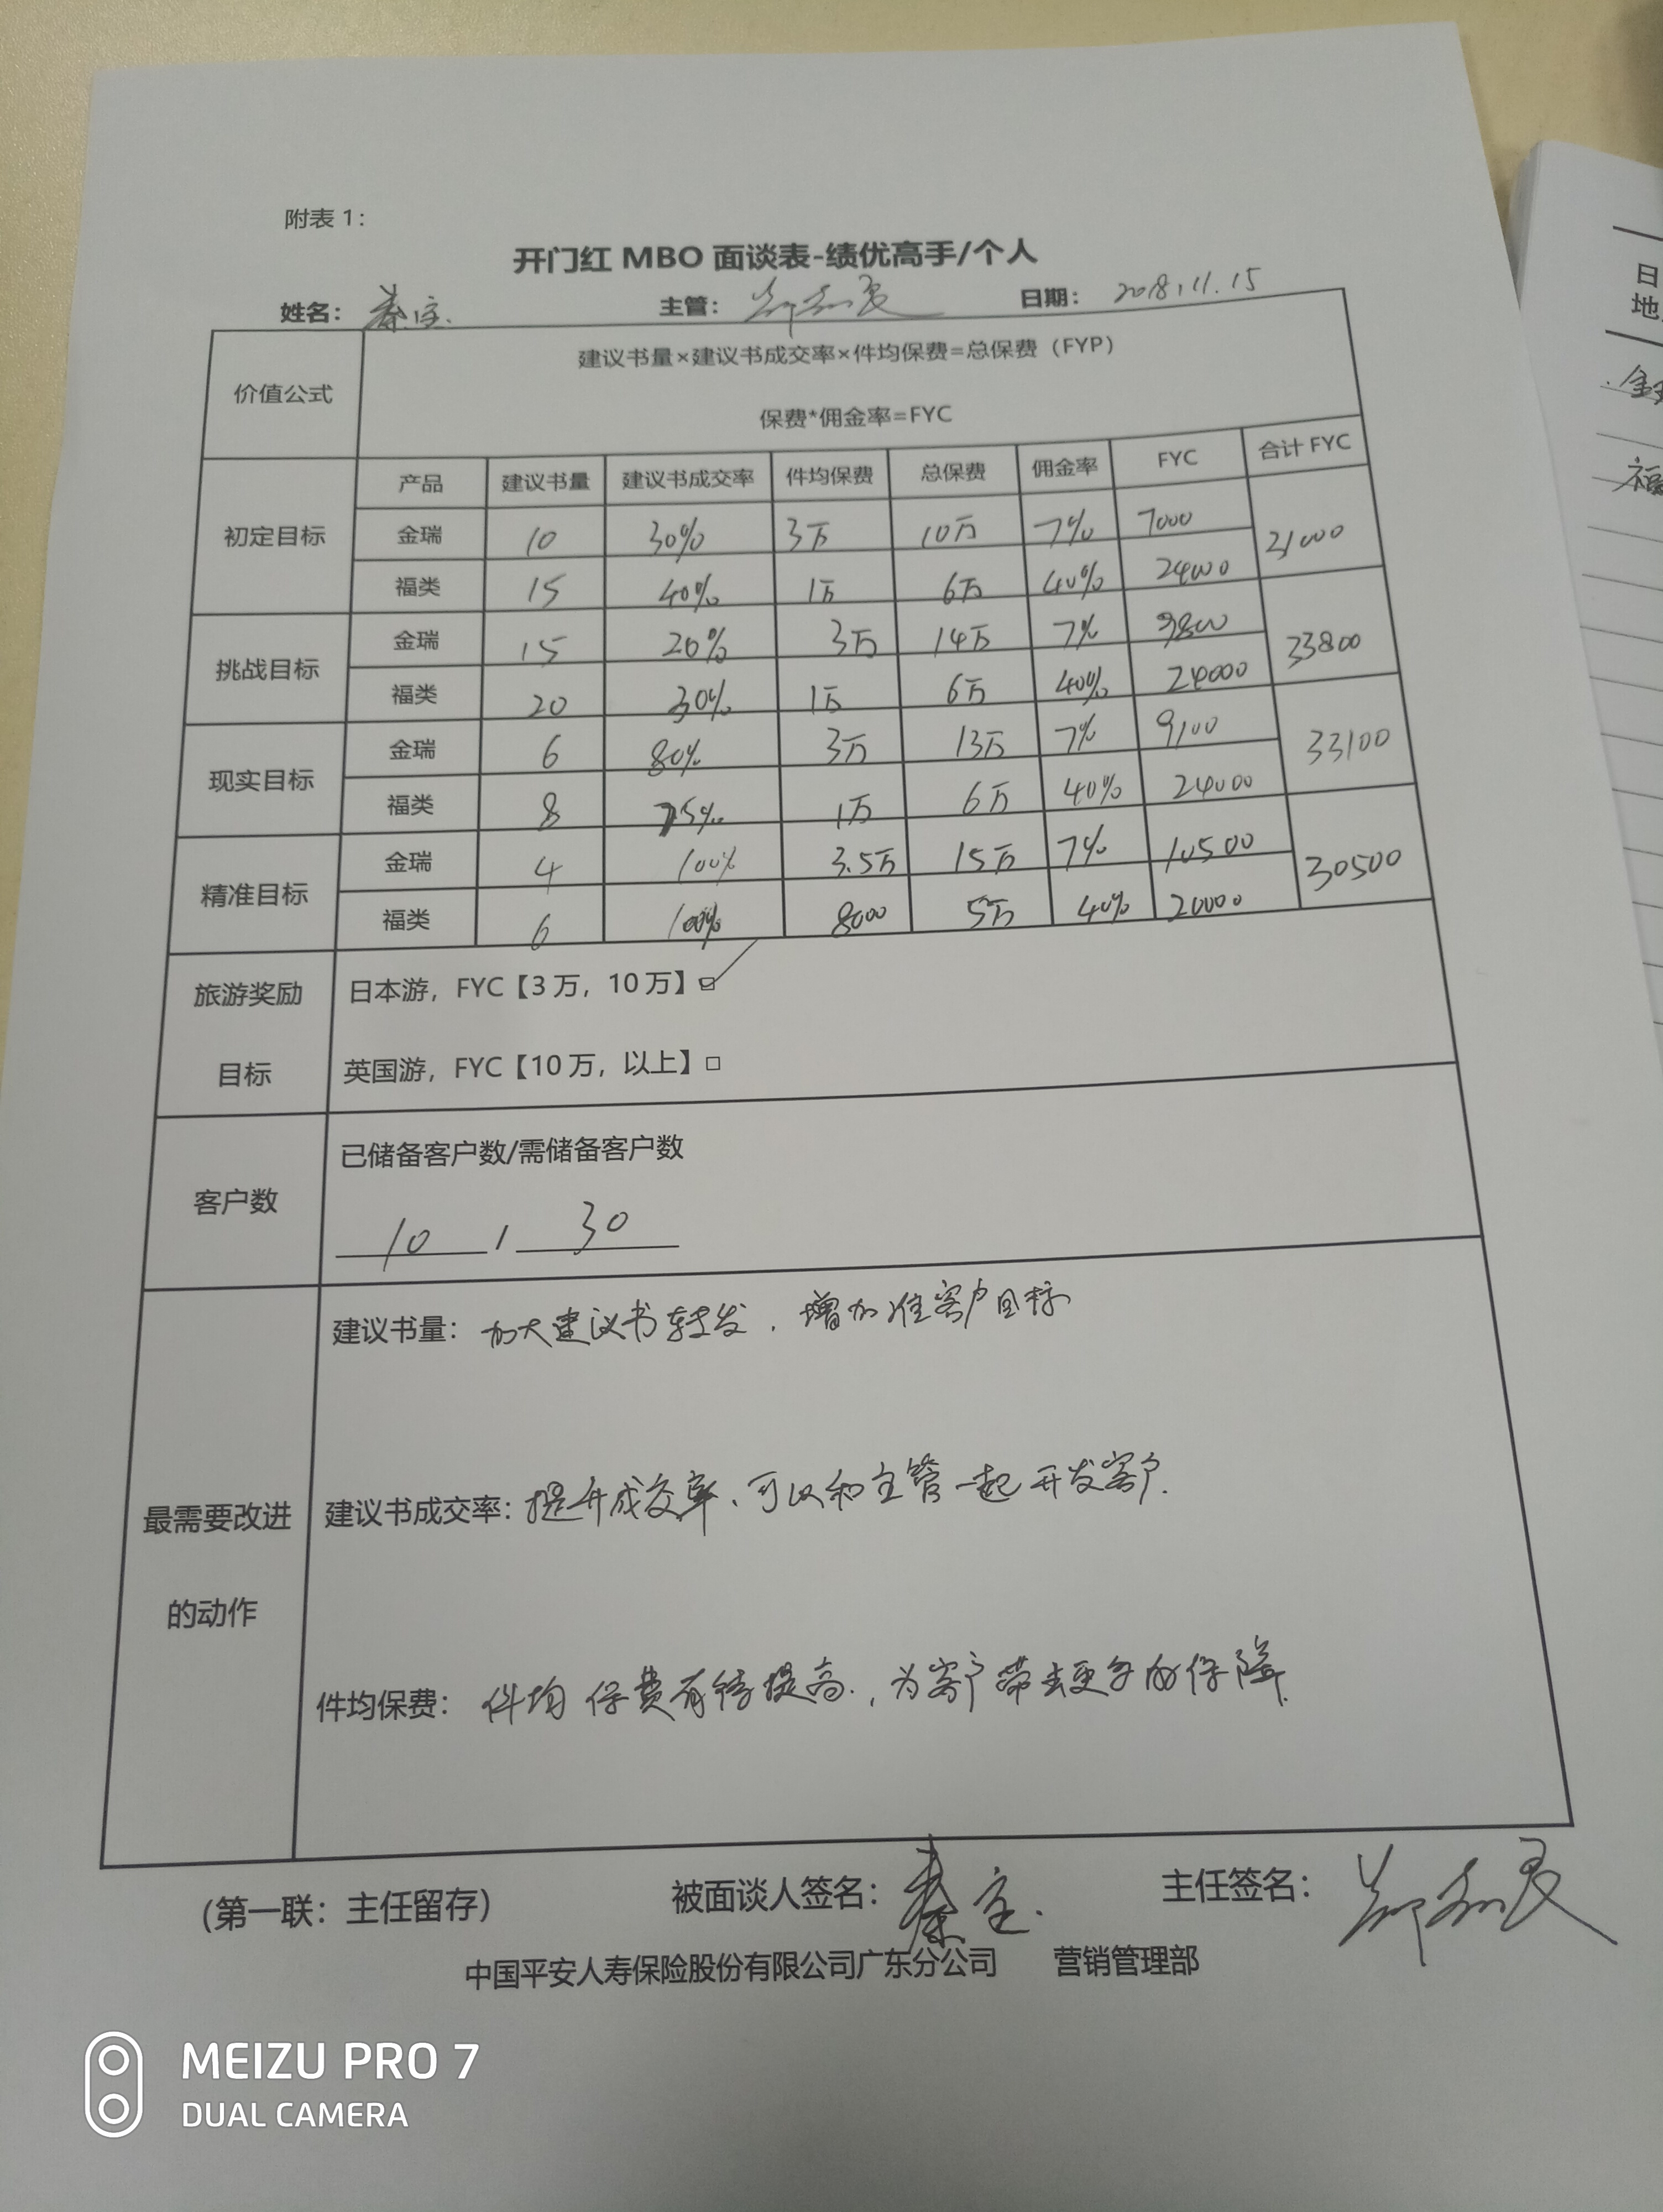 附表 1：
开门红 MBO 面谈表-绩优高手/个人
姓名： 秦宝. 主管： 日期： 2018.11.15
价值公式
建议书量×建议书成交率×件均保费=总保费（FYP）
保费*佣金率=FYC
产品 建议书量 建议书成交率 件均保费 总保费 佣金率 FYC 合计 FYC
初定目标
金瑞 10 30% 3万 10万 7% 7000 31000
福类 15 40% 1万 6万 40% 24000
挑战目标
金瑞 15 20% 3万 14万 7% 9800 33800
福类 20 30% 1万 6万 40% 24000
现实目标
金瑞 6 80% 3万 13万 7% 9100 33100
福类 8 75% 1万 6万 40% 24000
精准目标
金瑞 4 100% 3.5万 15万 7% 10500 30500
福类 6 100% 8000 5万 40% 20000
旅游奖励
目标
日本游，FYC【3 万，10 万】☑
英国游，FYC【10 万，以上】□
客户数
已储备客户数/需储备客户数
10 / 30
最需要改进
的动作
建议书量： 加大建议书转发，增加准客户目标
建议书成交率： 提升成交率、可以和主管一起开发客户.
件均保费： 件均保费有待提高.，为客户带去更多的保障.
(第一联：主任留存） 被面谈人签名： 秦宝. 主任签名：
中国平安人寿保险股份有限公司广东分公司 营销管理部
MEIZU PRO 7
DUAL CAMERA
日
地